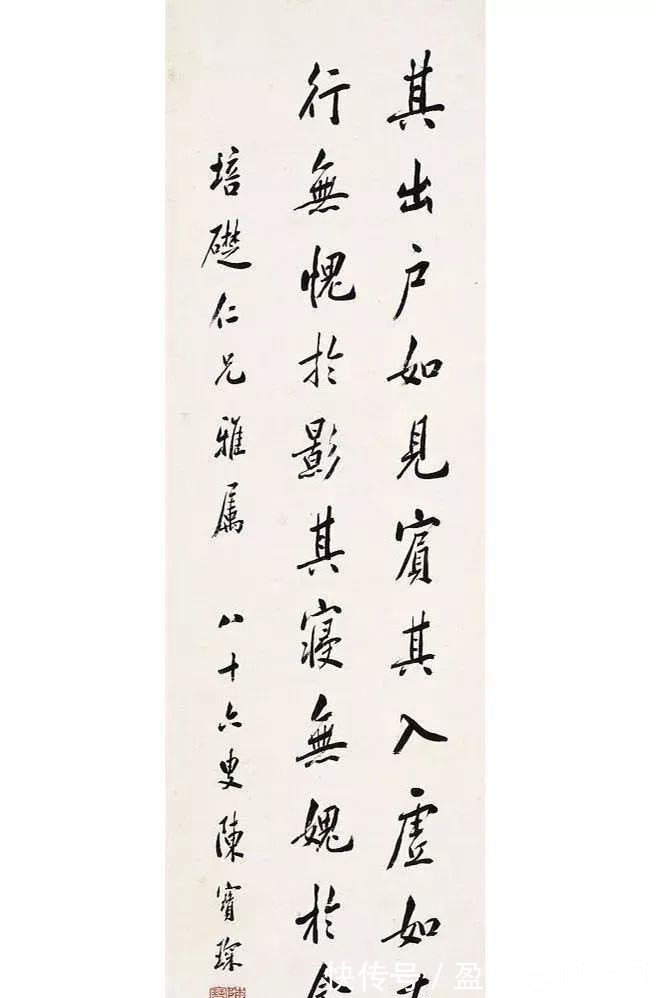 其出户如見賓其入虛如
行無愧於影其寢無媿於
培礎仁兄雅屬 八十六叟陳寶琛
快传号/盈